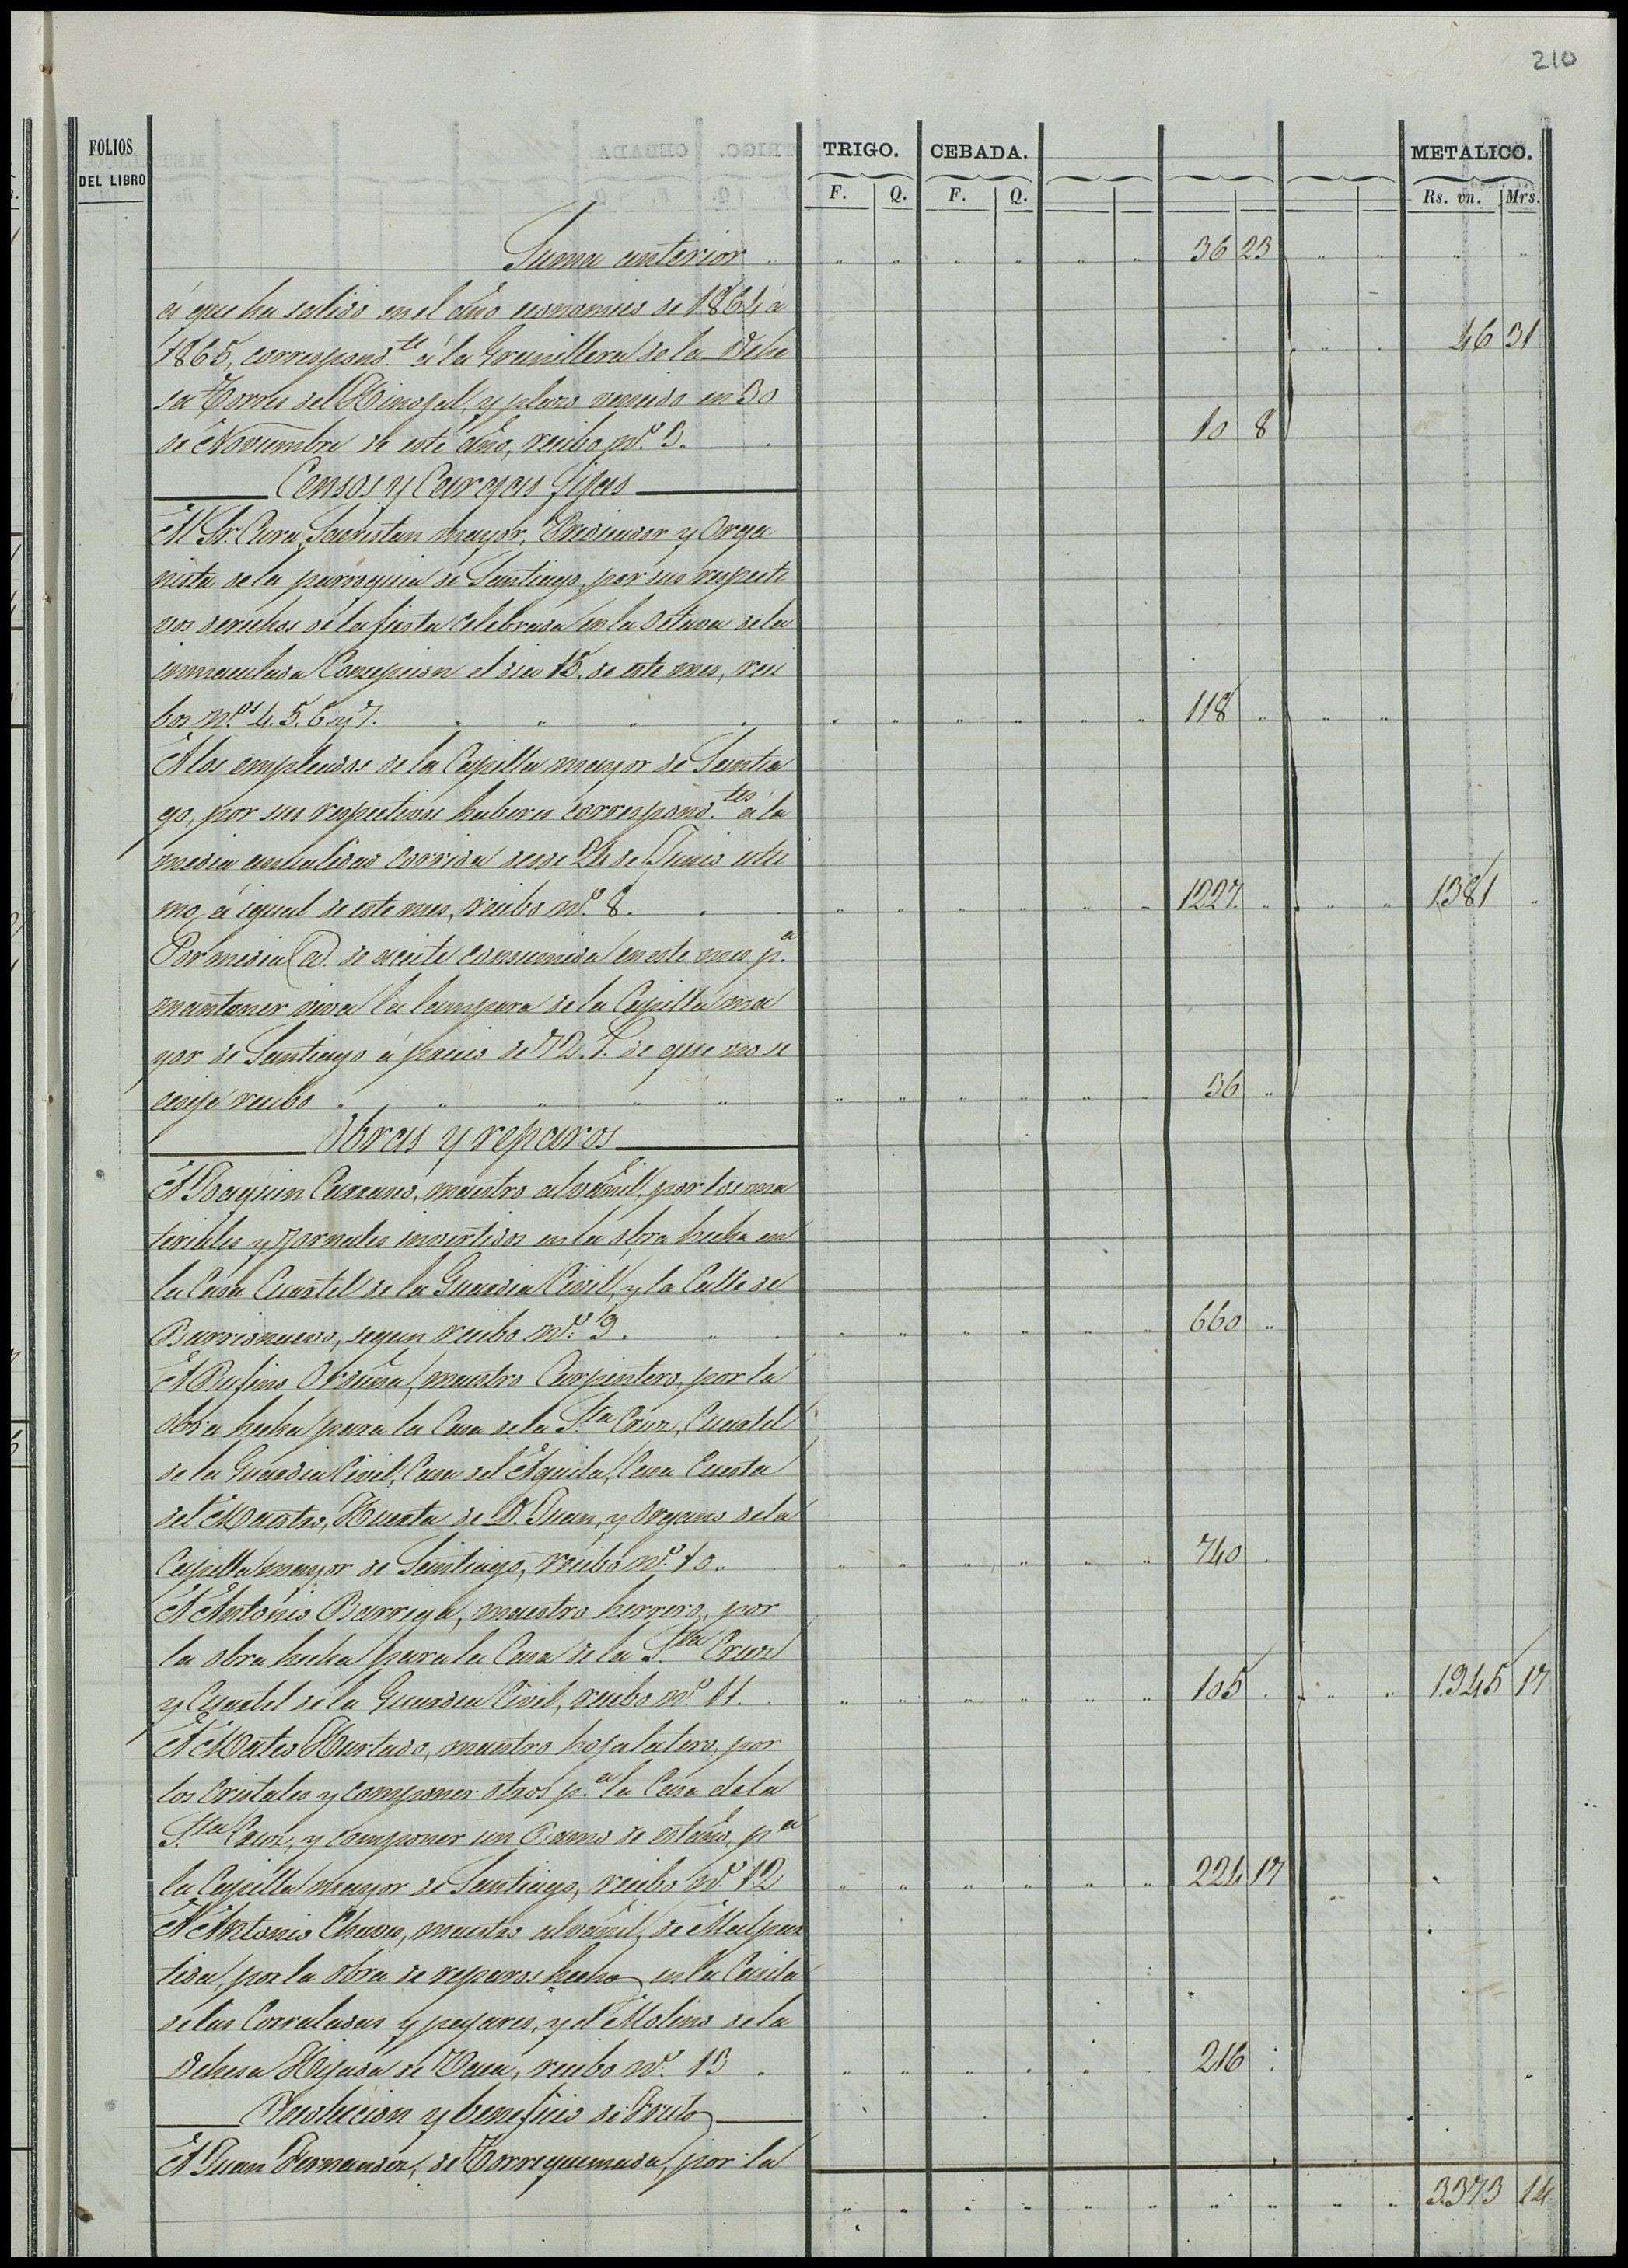 210
FOLIOS DEL LIBRO TRIGO. CEBADA. METALICO.
F. Q. F. Q. Rs. vn. Mrs.
Suma anterior 36 23
á que ha salido en el año economico de 1864 á
1865, correspond.te á la Granillera de la Dehe 46 31
sa Torres del Hinojal, y plazo vencido en 30
de Noviembre de este año, recibo n.º 3. 10 8
Censos y Cargas fijas
Al Sr. Cura, Sacristan mayor, Predicador y Orga
nista de la parroquia de Santiago, por sus respecti
vos derechos de la fiesta celebrada en la Octava de la
inmaculada Concepcion el dia 15. de este mes, reci
bos n.os 4. 5. 6. y 7. 118
A los empleados de la Capilla mayor de Santia
go, por sus respectivos haberes correspond.tes á la
media anualidad corrida desde 24 de Junio ulti
mo, á igual de este mes, recibo n.º 8. 1227 1381
Por media @. de aceite consumida en este mes p.a
mantener viva la lampara de la Capilla ma
yor de Santiago á precio de 72. r. de que no se
exije recibo 36
Obras y reparos
A Joaquin Cazzano, maestro alvañil, por los ma
teriales y jornales invertidos en la obra hecha en
la Casa Cuartel de la Guardia Civil, y la Calle de
Barrionuevo, segun recibo n.º 9. 660
A Rufino Orduña, maestro Carpintero, por la
obra hecha para la Casa de la S.ta Cruz, Cuartel
de la Guardia Civil, Casa del Aguila, Casa Cuesta
del Maestro, Huerta de D. Juan, y Organo de la
Capilla mayor de Santiago, recibo n.º 10. 740
A Antonio Barriga, maestro herrero, por
la obra hecha para la Casa de la S.ta Cruz
y Cuartel de la Guardia Civil, recibo n.º 11. 105 1945 17
A Mateo Hurtado, maestro hojalatero, por
los cristales y componer otros p.a la Casa de la
S.ta Cruz, y componer un Ramo de estaño, p.a
la Capilla mayor de Santiago, recibo n.º 12 224 17
A Antonio Chaves, maestro alvañil, de Malpar
tida, por la obra de reparos hecha en la Casila
de las Corraladas y pajares, y el Molino de la
Dehesa Hijada de Vaca, recibo n.º 13 216
Recoleccion y beneficio de Fruto
A Juan Fernandez, de Torrequemada, por la
3373 14